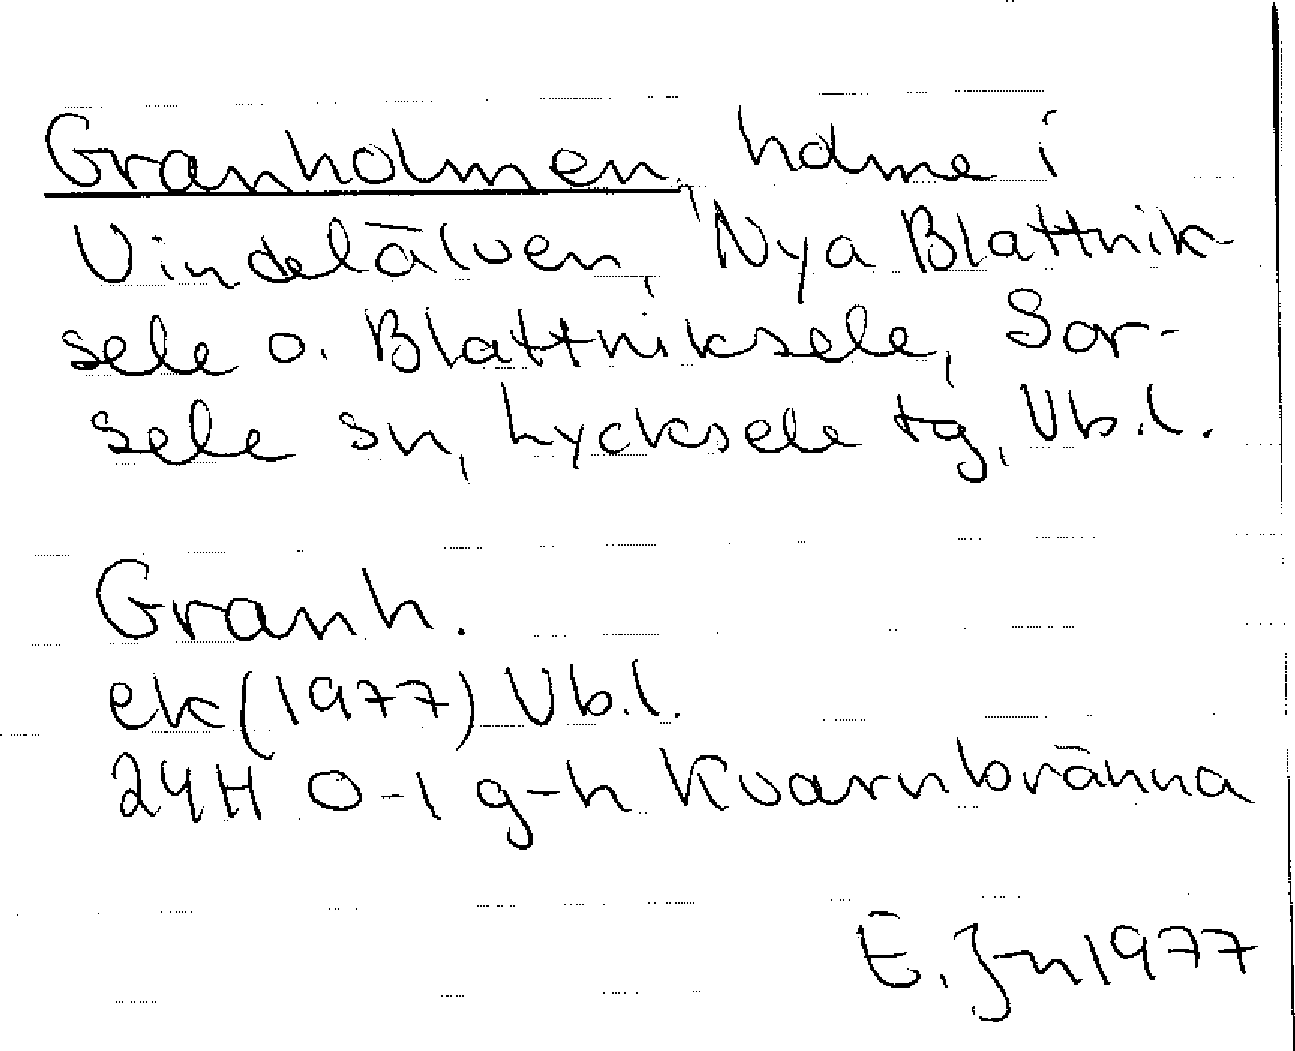 Granholmen, holme i
Vindelälven, Nya Blattnik
sele o. Blattniksele, Sor-
sele sn, Lycksele tg, Vb.l.
Granh.
ek(1977) Vb.l.
24H 0-1 g-h Kvarnbränna
E. Jn 1977